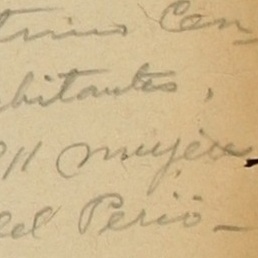 trino Cen-
abitantes,
11 mujeres
del Perió-